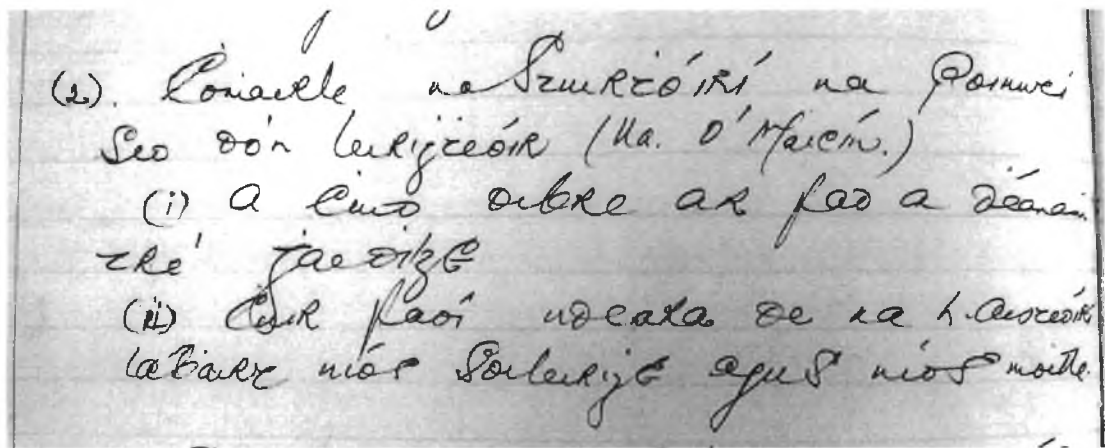 (2). Comairle na Stiurtóirí na
Seo don leirigteóir (Ua. O'Maicín.)
(i) A cuid oibre ar fad a déanam
tré Gaedilge
(ii) Cur faoi ndeara de na h.aisteóirí
labairt níos soileirige agus níos moille.